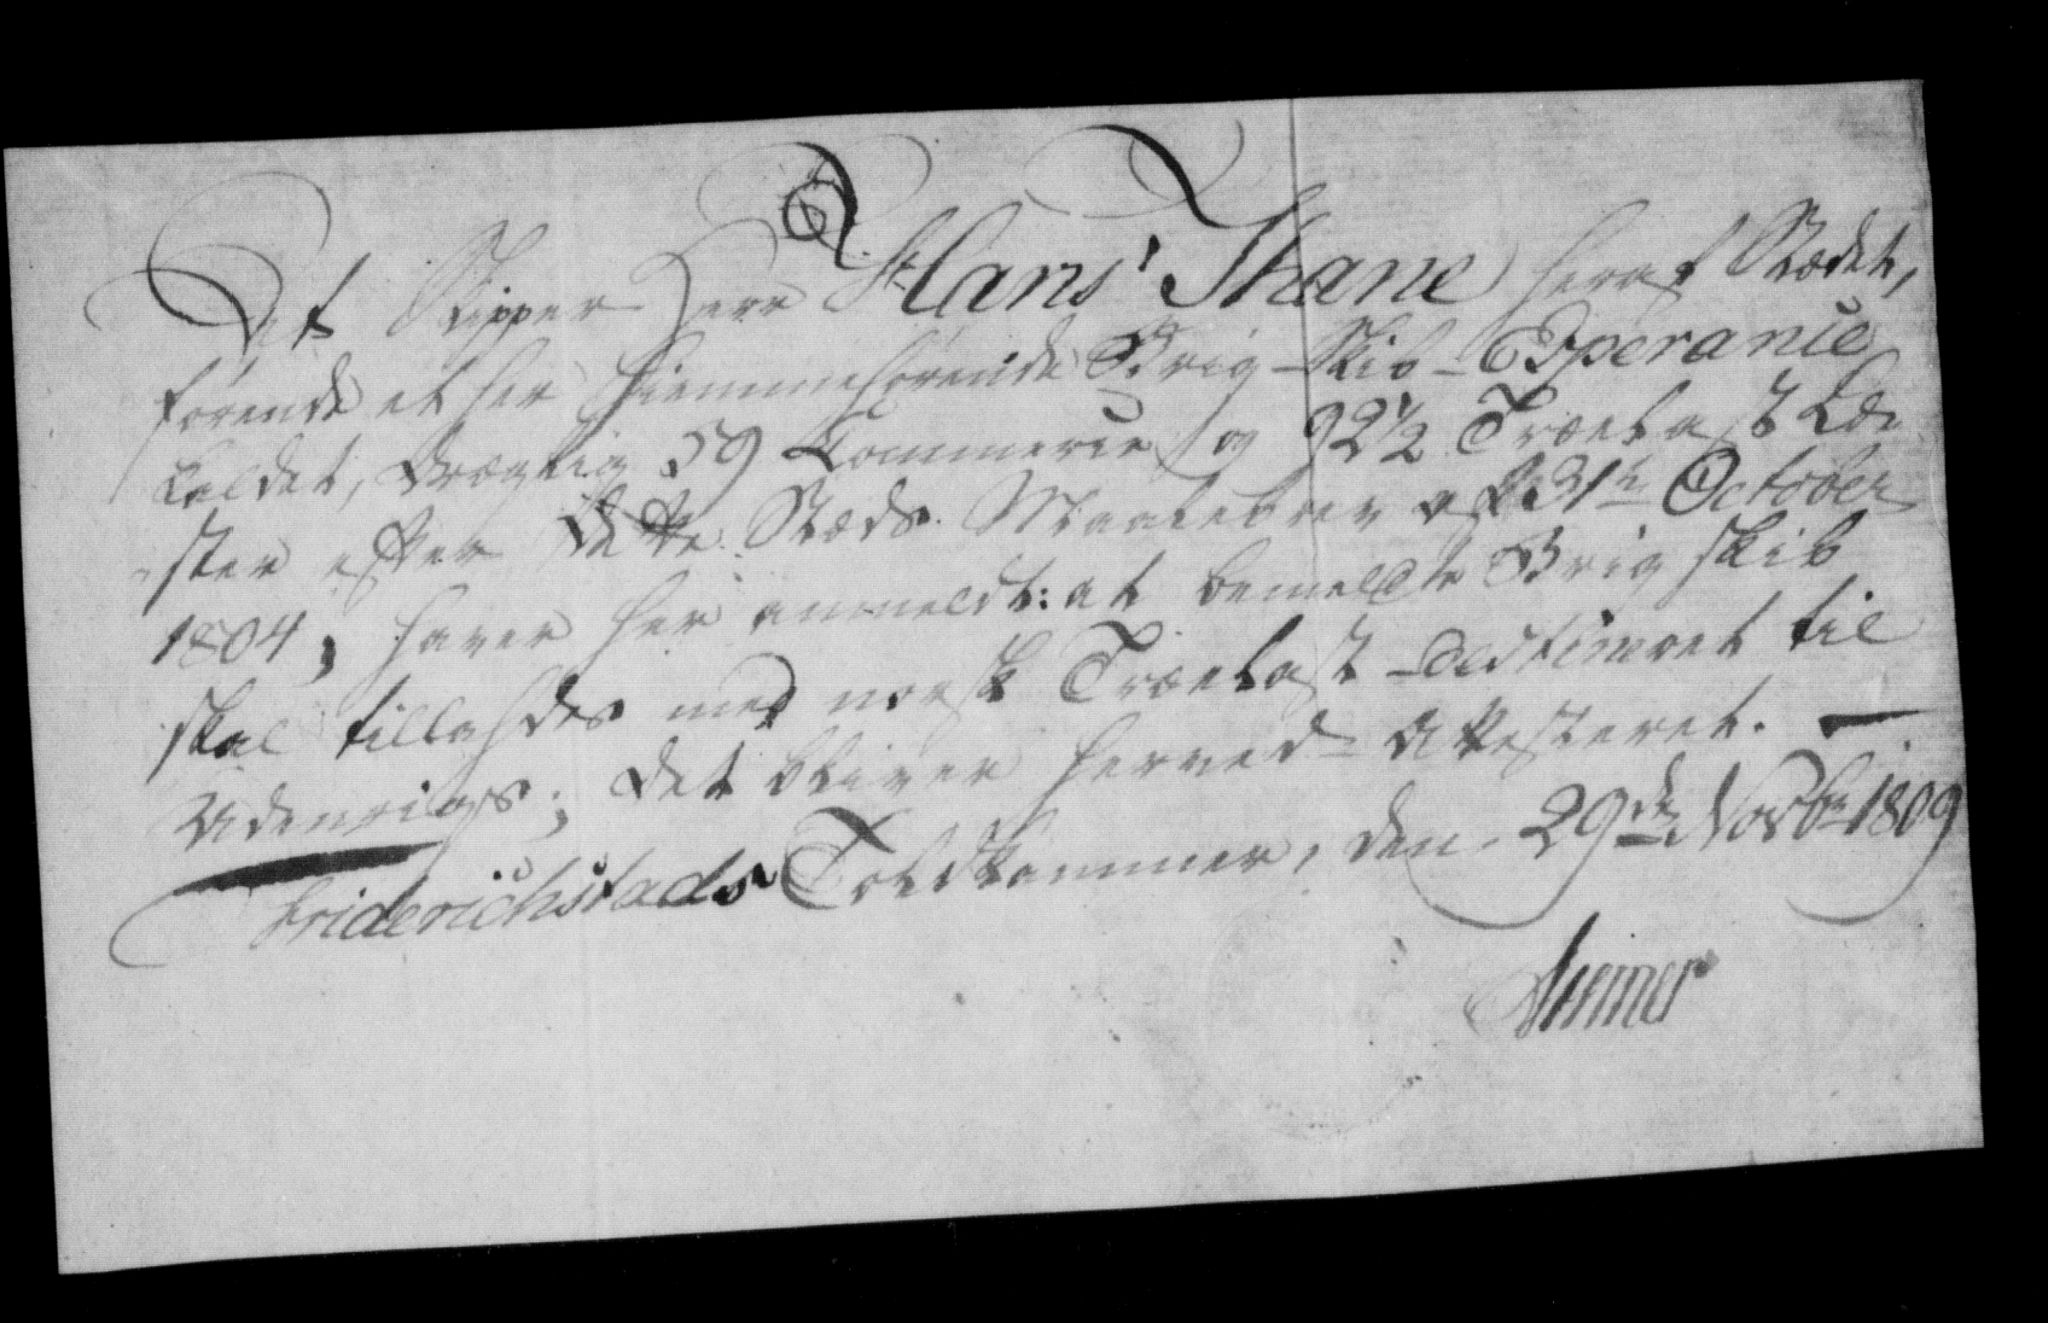 At Skipper Herr Hans Thane heraf Stædet,
førende et her hiemmehørende Brig-Skib-Esperance
kaldet, drægtig 59 Commerce og 92½ Trælast Læ-
-ster efter dette Stæds Maalebrev af 31te October
1804, haver her anmeldt: at bemeldte Brig Skib
skal tillades med norsk Trælast-destineret til
Udenrigs; det bliver herved-Attesteret. —
Friderichstads Toldkammer, den 29de Novbr 1809